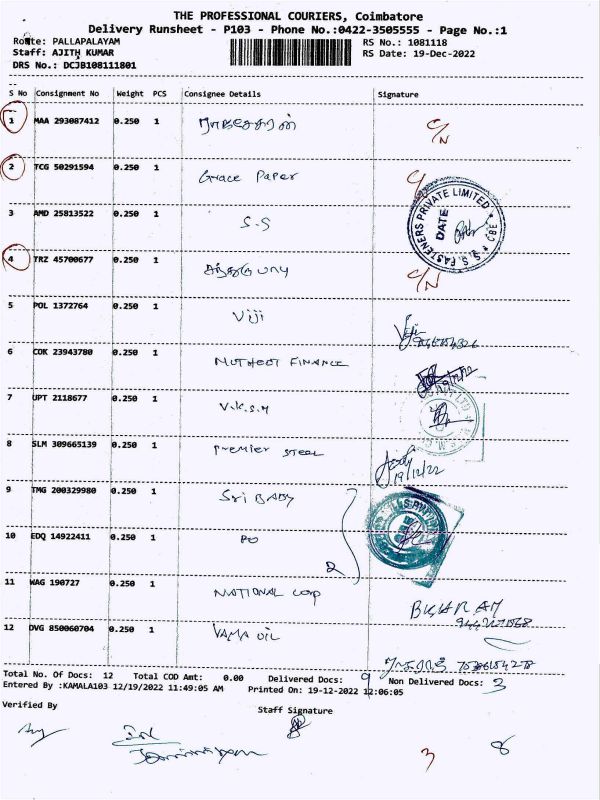 THE PROFESSIONAL COURIERS, Coimbatore
Delivery Runsheet - P103 - Phone No.:0422-3505555 - Page No.:1
Route: PALLAPALAYAM
RS No.: 1081118
Staff: AJITH KUMAR
RS Date: 19-Dec-2022
DRS No.: DCJB108111801
S No Consignment No Weight PCS Consignee Details Signature
1 MAA 293087412 0.250 1 C/N
2 TCG 50291594 0.250 1 Grace Paper
S.S. FASTENERS PRIVATE LIMITED CBE DATE
3 AMD 25813522 0.250 1 S.S
4 TRZ 45700677 0.250 1 C/N
5 POL 1372764 0.250 1 Viji Viji
6 COK 23943780 0.250 1 MUTHOOT FINANCE 19/12/22
7 UPT 2118677 0.250 1 V.K.S.M
8 SLM 309665139 0.250 1 Premier Steel 19/12/22
9 TMG 200329980 0.250 1 Sri BABY
10 EDQ 14922411 0.250 1 PO
2
11 WAG 190727 0.250 1 NATIONAL Corp
12 DVG 850060704 0.250 1 VAMA OIL
Total No. Of Docs: 12 Total COD Amt: 0.00 Delivered Docs: 9 Non Delivered Docs: 3
Entered By :KAMALA103 12/19/2022 11:49:05 AM Printed On: 19-12-2022 12:06:05
Verified By Staff Signature
3 8